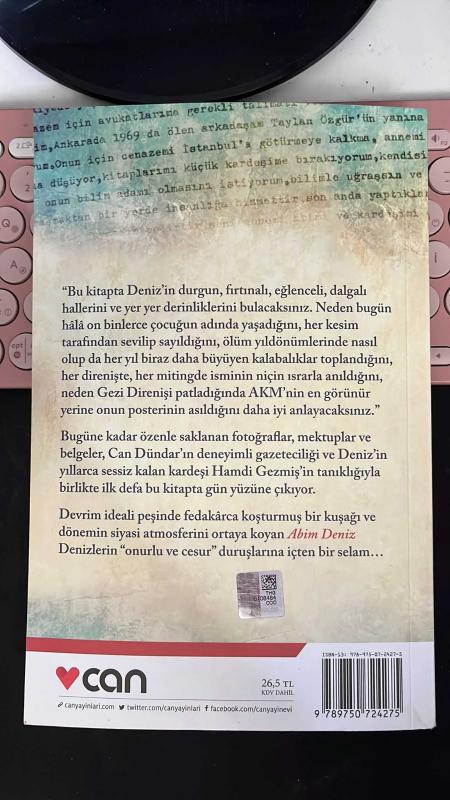 azem için avukatlarıma gerekli talimatı
im,Ankarada 1969 da ölen arkadaşım Taylan Özgür'ün yanına
um.Onun için cenazemi İstanbul'a götürmeye kalkma, annemi
a düşüyor,kitaplarımı küçük kardeşime bırakıyorum,kendisi
onun bilim adamı olmasını istiyorum,bilimle uğraşsın ve
bir yerde insanlığa hizmettir.son anda yaptıkla
“Bu kitapta Deniz’in durgun, fırtınalı, eğlenceli, dalgalı
hallerini ve yer yer derinliklerini bulacaksınız. Neden bugün
hâlâ on binlerce çocuğun adında yaşadığını, her kesim
tarafından sevilip sayıldığını, ölüm yıldönümlerinde nasıl
olup da her yıl biraz daha büyüyen kalabalıklar toplandığını,
her direnişte, her mitingde isminin niçin ısrarla anıldığını,
neden Gezi Direnişi patladığında AKM’nin en görünür
yerine onun posterinin asıldığını daha iyi anlayacaksınız.”
Bugüne kadar özenle saklanan fotoğraflar, mektuplar ve
belgeler, Can Dündar’ın deneyimli gazeteciliği ve Deniz’in
yıllarca sessiz kalan kardeşi Hamdi Gezmiş’in tanıklığıyla
birlikte ilk defa bu kitapta gün yüzüne çıkıyor.
Devrim ideali peşinde fedakârca koşturmuş bir kuşağı ve
dönemin siyasi atmosferini ortaya koyan Abim Deniz
Denizlerin “onurlu ve cesur” duruşlarına içten bir selam…
can
canyayinlari.com twitter.com/canyayinlari facebook.com/canyayinevi
26,5 TL
KDV DAHİL
ISBN-13: 978-975-07-2427-5
9 789750 724275